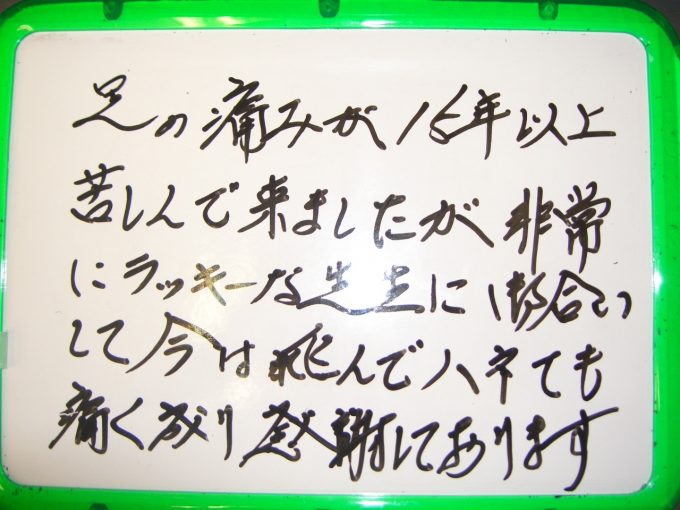 足の痛みが15年以上
苦しんで来ましたが非常
にラッキーな先生に
して今は飛んでハネても
痛く成り感謝してあります